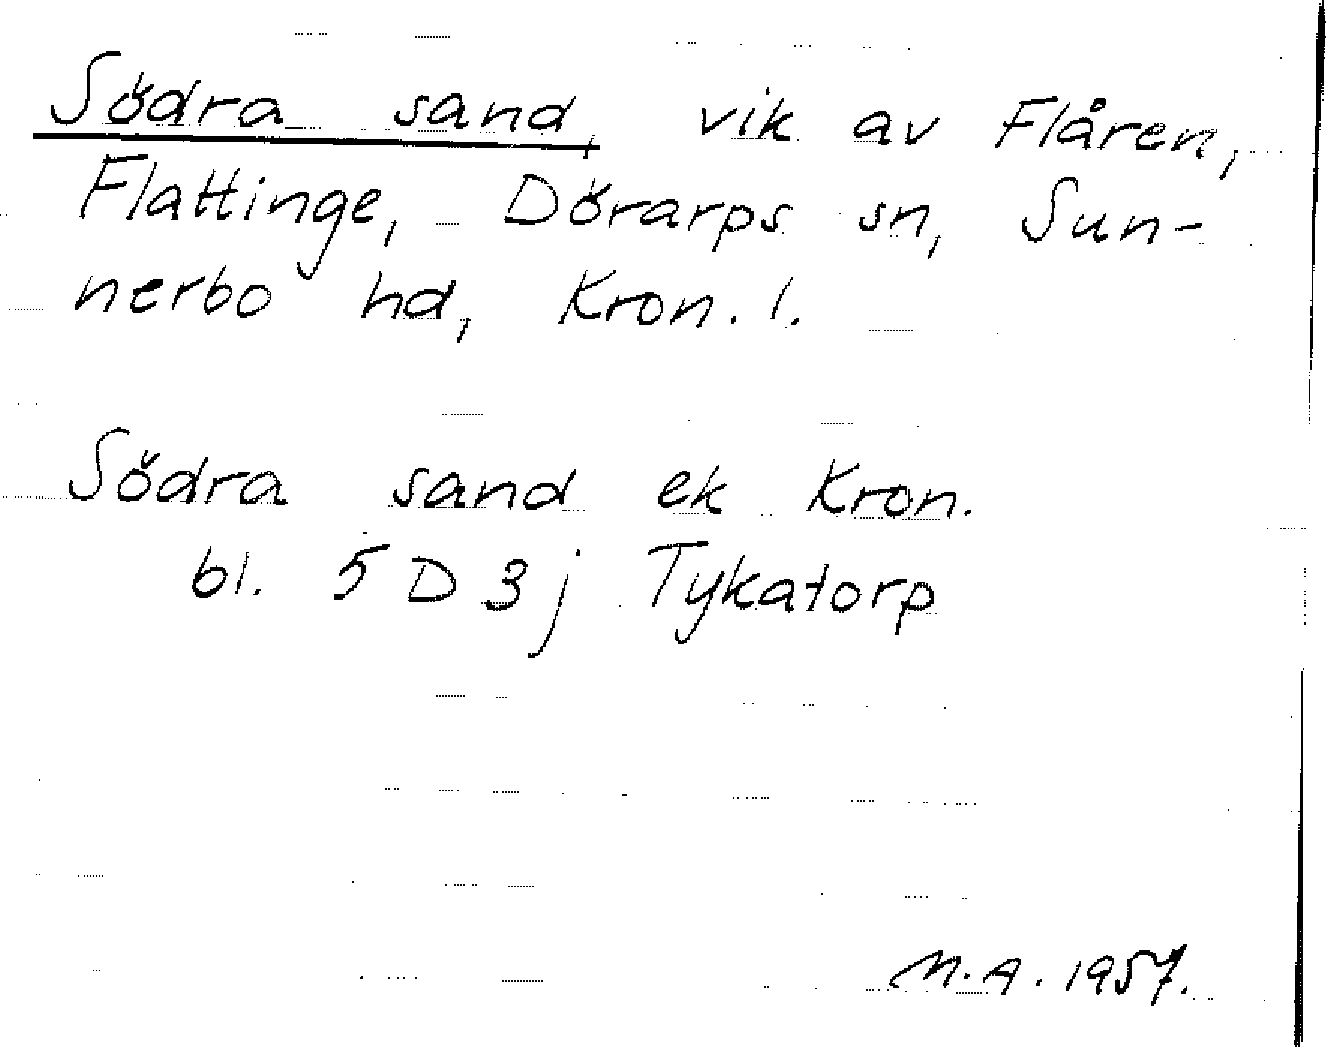 Södra sand, vik av Flåren,
Flattinge, Dörarps sn, Sun-
nerbo hd, Kron. l.
Södra sand ek Kron.
bl. 5 D 3 j Tykatorp
M.A. 1957.